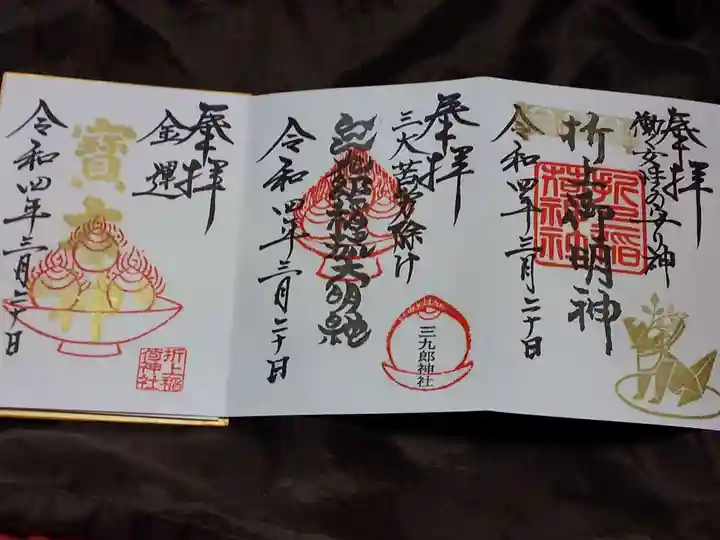 奉拝
働く女達の守り神
折上稲荷神社
折上御明神
令和四年三月二十日
奉拝
三火苦労除け
三九郎稲荷大明神
三九郎神社
令和四年三月二十日
奉拝
金運
令和四年三月二十日
折上稲荷神社